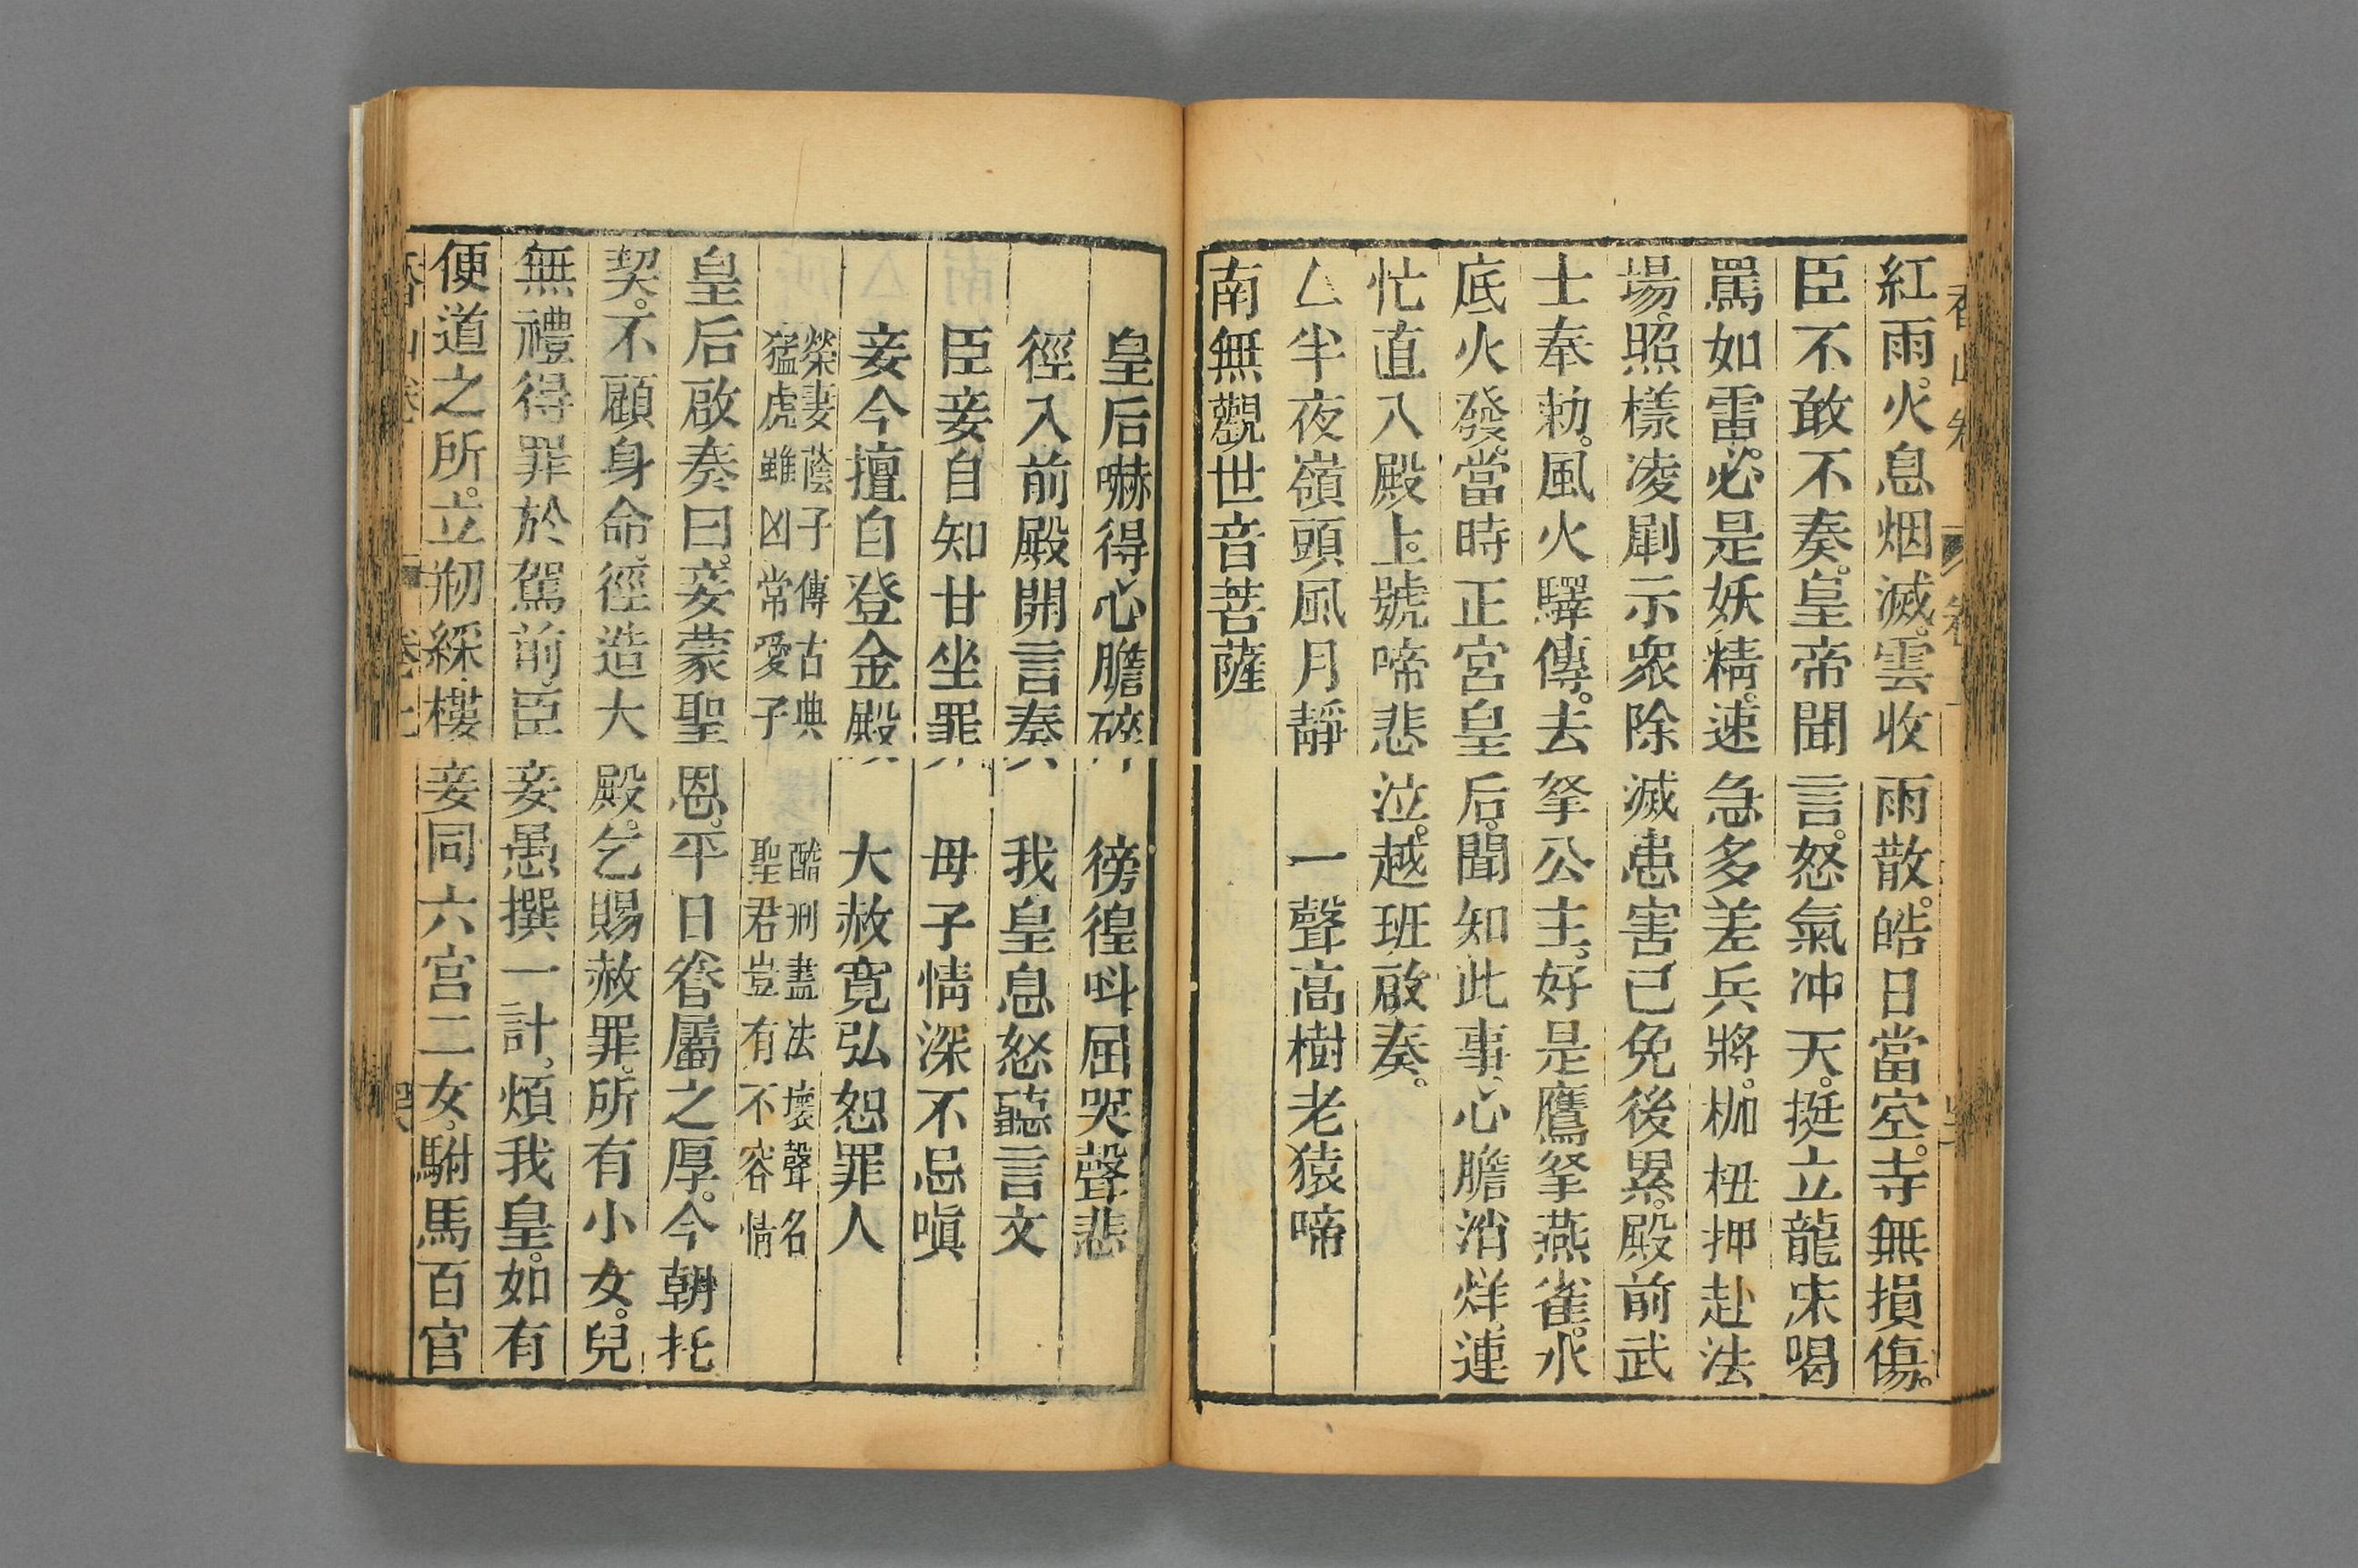 紅雨。火息烟滅。雲收雨散。皓日當空。寺無損傷。
臣不敢不奏。皇帝聞言。怒氣冲天。挺立龍床喝
罵如雷。必是妖精。速急多差兵將。枷杻押赴法
場。照樣凌剮示衆除滅患害。已免後累。殿前武
士奉勅。風火驛傳。去拏公主。好是鷹拏燕雀。水
底火發。當時正宮皇后。聞知此事。心膽消烊。連
忙直入殿上。號啼悲泣。越班啟奏。
△半夜嶺頭風月靜 一聲高樹老猿啼
南無觀世音菩薩
皇后嚇得心膽碎 徬徨呌屈哭聲悲
徑入前殿開言奏 我皇息怒聽言文
臣妾自知甘坐罪 母子情深不忌嗔
妾今擅自登金殿 大赦寬弘恕罪人
榮妻蔭子傳古典 酷刑盡法壞聲名
猛虎雖凶常愛子 聖君豈有不容情
皇后啟奏曰。妾蒙聖恩。平日眷屬之厚。今朝托
契。不顧身命。徑造大殿。乞賜赦罪。所有小女。兒
無禮得罪於駕前。臣妾愚撰一計。煩我皇。如有
便道之所。立剏綵樓妾同六宮二女。駙馬百官
香山卷 卷上